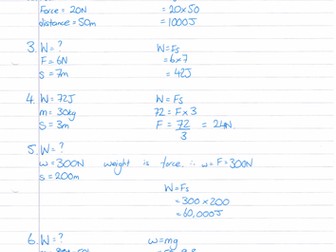 Force = 20N = 20 x 50
distance = 50m = 1000J
3. W = ? W = Fs
F = 6N = 6 x 7
s = 7m = 42J
4. W = 72J W = Fs
m = 30kg 72 = F x 3
s = 3m F = 72/3 = 24N
5. W = ?
w = 300N weight is force ∴ w = F = 300N
s = 200m
W = Fs
= 300 x 200
= 60,000J
6. W = ? w = mg